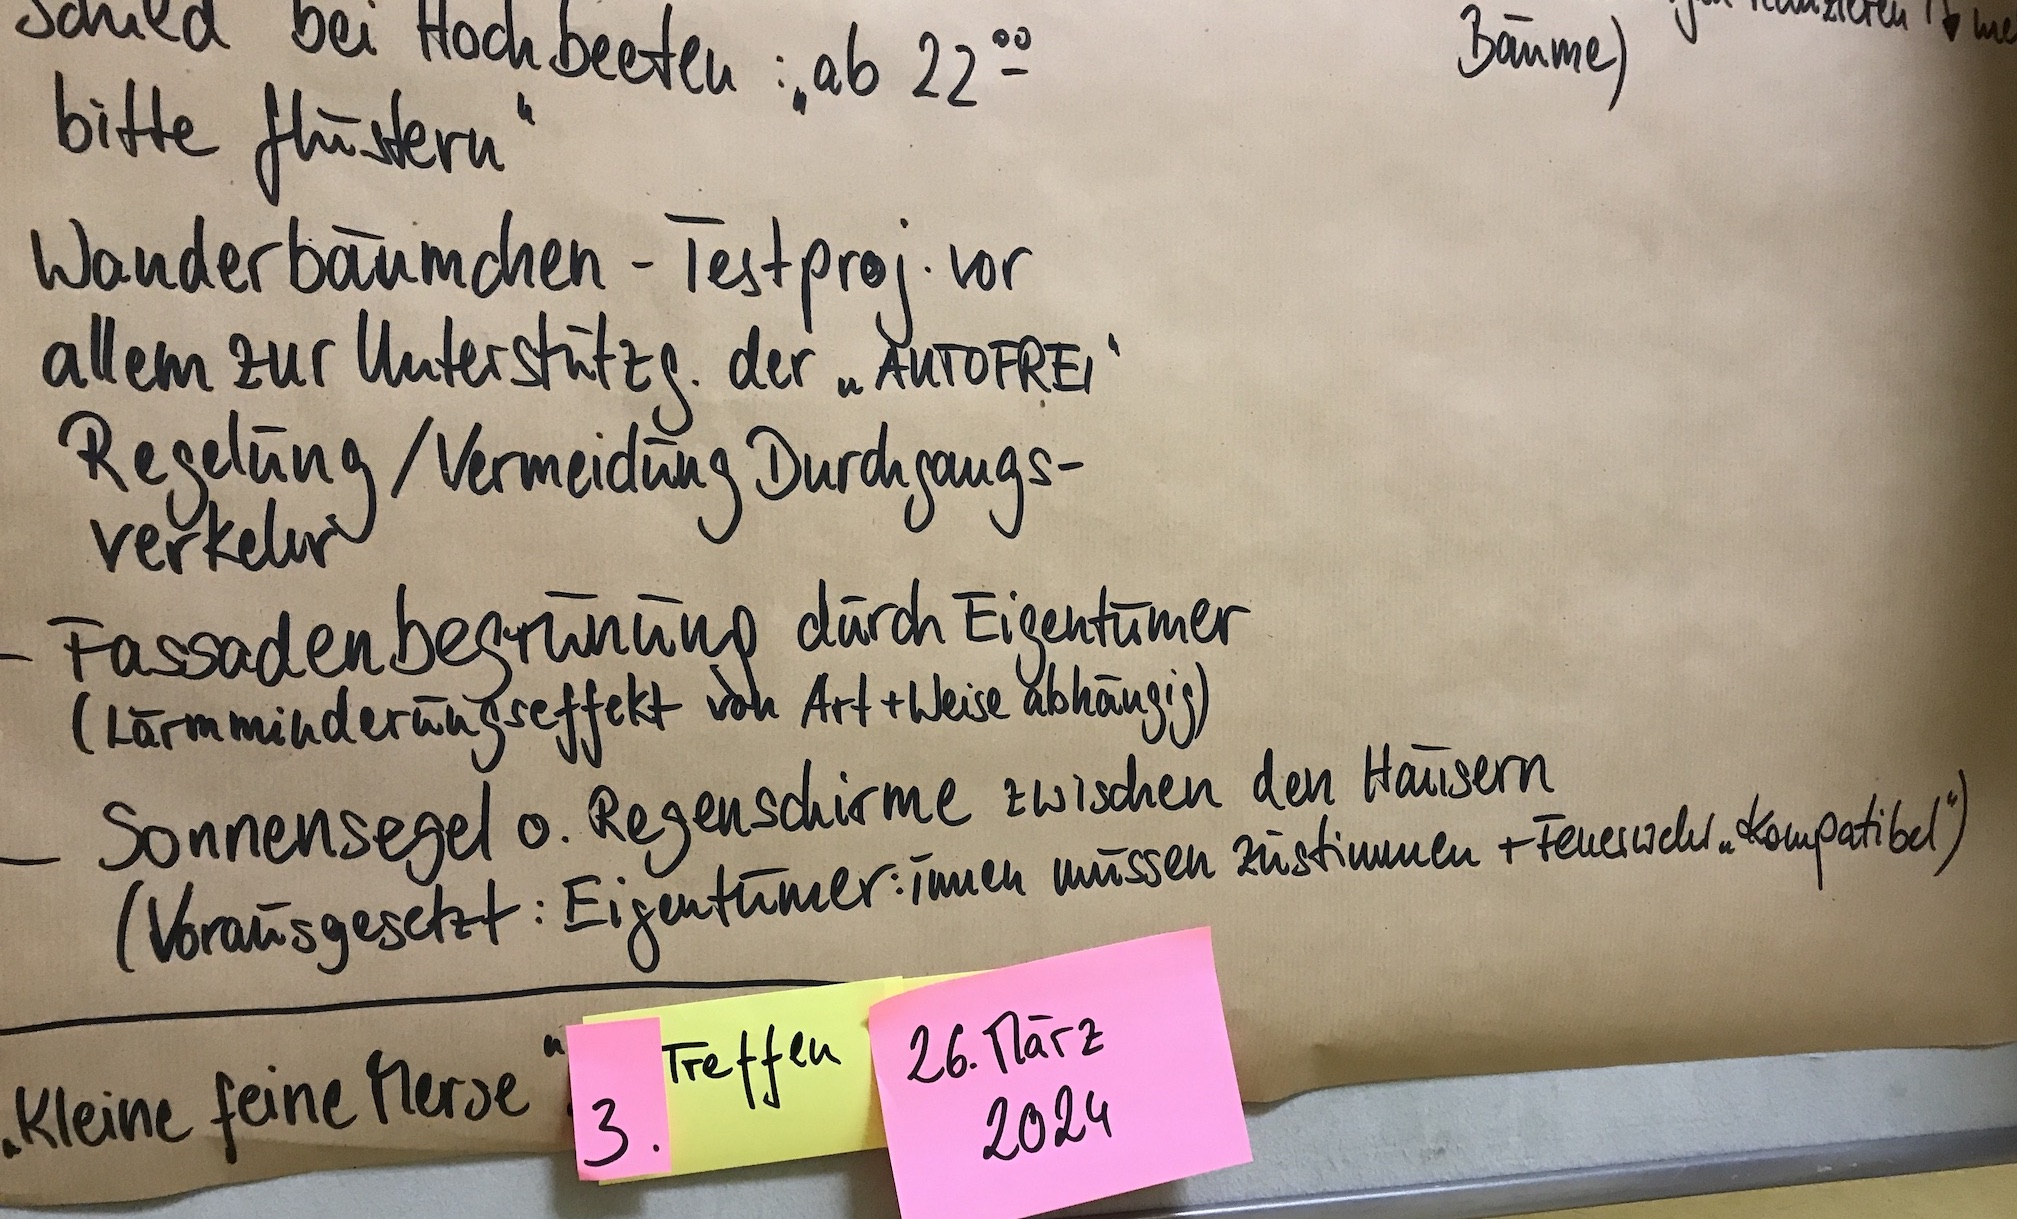 Schild bei Hochbeeten : „ab 22⁰⁰
bitte flüstern“
Wanderbäumchen - Testproj. vor
allem zur Unterstützg. der „AUTOFREI“
Regelung / Vermeidung Durchgangs-
verkehr
- Fassadenbegrünung durch Eigentümer
(Lärmminderungseffekt von Art + Weise abhängig)
- Sonnensegel o. Regenschirme zwischen den Häusern
(Vorausgesetzt : Eigentümer:innen müssen zustimmen + Feuerwehr „kompatibel“)
„Kleine feine Merse“
3. Treffen
26. März
2024
Bäume)